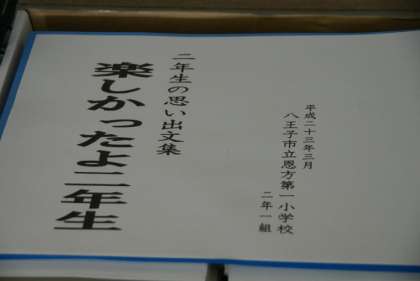 平成二十三年三月
八王子市立恩方第一小学校
二年一組
二年生の思い出文集
楽しかったよ二年生